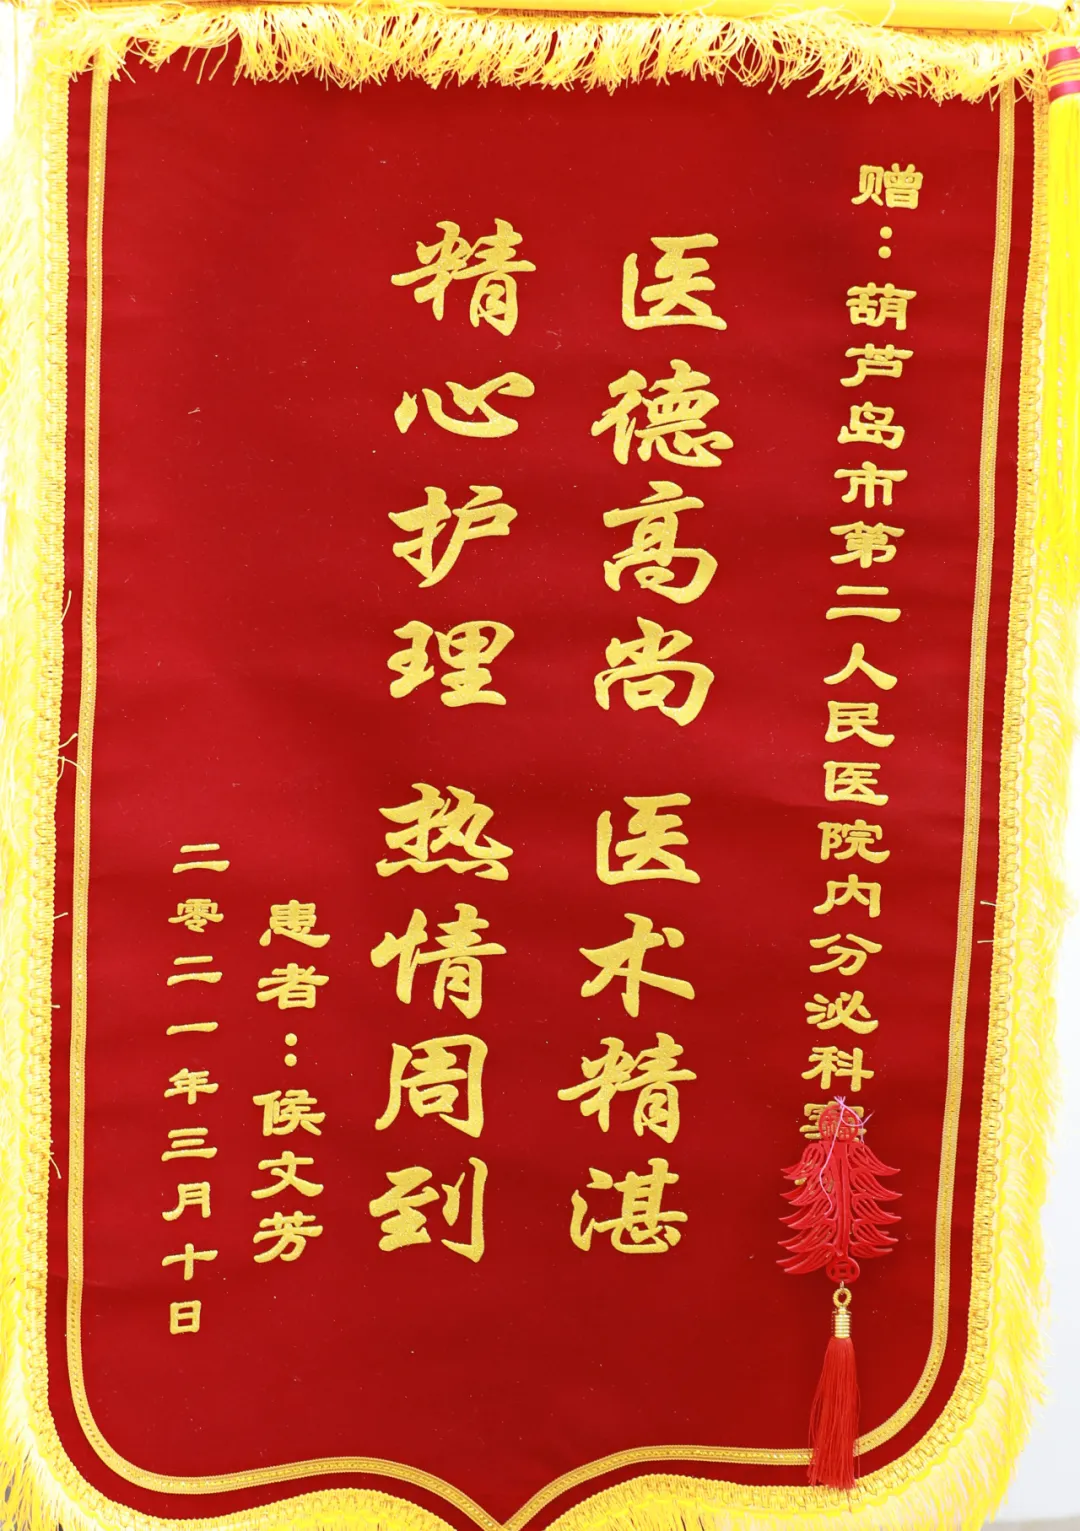 赠：葫芦岛市第二人民医院内分泌科室
医德高尚 医术精湛
精心护理 热情周到
患者：候文芳
二零二一年三月十日